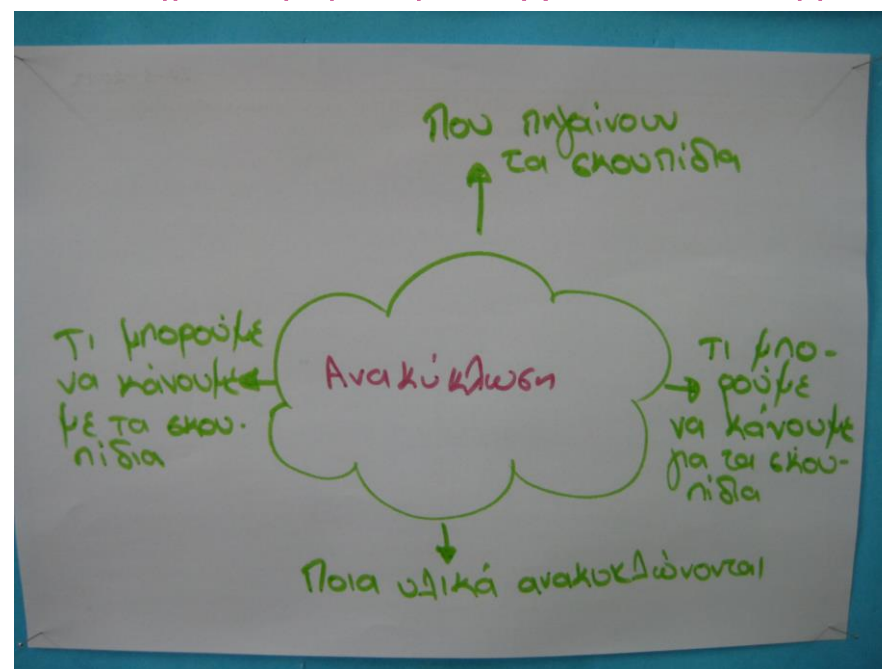 Που πηγαίνουν
τα σκουπίδια
Τι μπορούμε
να κάνουμε
με τα σκου-
πίδια
Ανακύκλωση
Τι μπο-
ρούμε
να κάνουμε
για τα σκου-
πίδια
Ποια υλικά ανακυκλώνονται